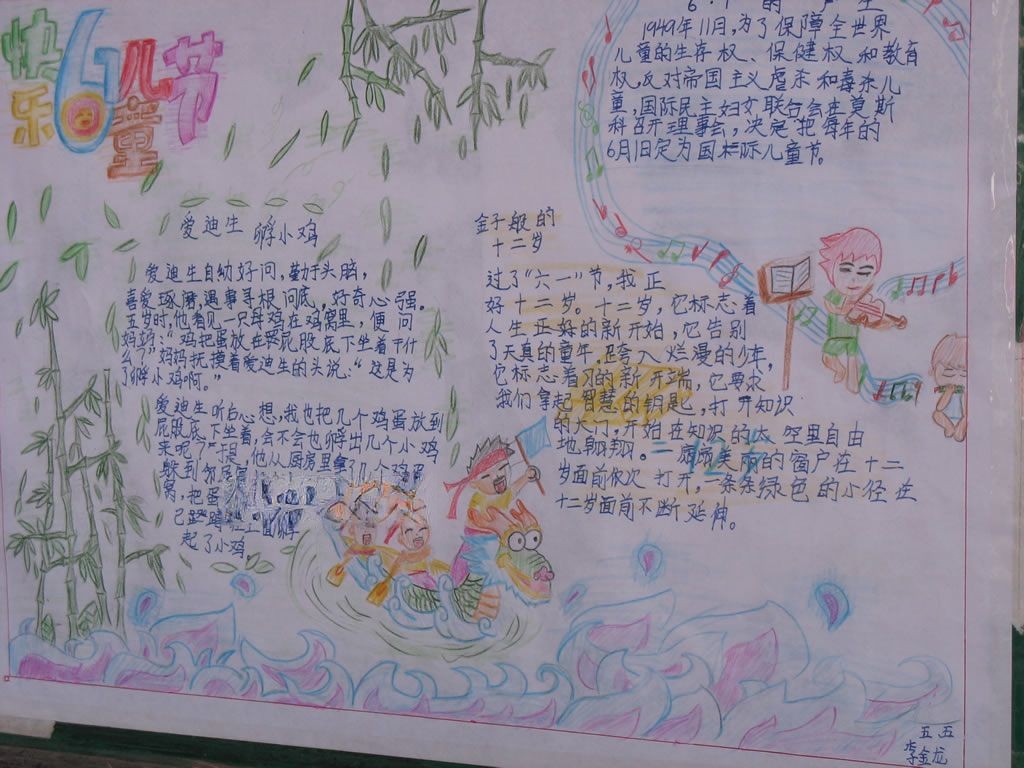 快乐61儿童节
6·1的产生
1949年11月,为了保障全世界
儿童的生存权、保健权和教育
权,反对帝国主义虐杀和毒杀儿
童,国际民主妇女联合会在莫斯
科召开理事会,决定把每年的
6月1日定为国际儿童节。
爱迪生
孵小鸡
爱迪生自幼好问,勤于头脑,
喜爱琢磨,遇事寻根问底,好奇心强。
五岁时,他看见一只母鸡在鸡窝里,便问
妈妈:“鸡把蛋放在屁股底下坐着干什
么?”妈妈抚摸着爱迪生的头说:“这是为
了孵小鸡啊。”
爱迪生听后心想,我也把几个鸡蛋放到
屁股底下坐着,会不会也孵出几个小鸡
来呢?于是,他从厨房里拿了几个鸡蛋
躲到邻居
窝,把蛋
己蹲
上面孵
起了小鸡。
金子般的
十二岁
过了“六一”节,我正
好十二岁。十二岁,它标志着
人生正好的新开始,它告别
了天真的童年,迈入烂漫的少年,
它标志着的新开端,它要求
我们拿起智慧的钥匙,打开知识
的大门,开始在知识的太空里自由
地翱翔。一扇扇美丽的窗户在十二
岁面前依次打开,一条条绿色的小径在
十二岁面前不断延伸。
12岁
五五
李金龙